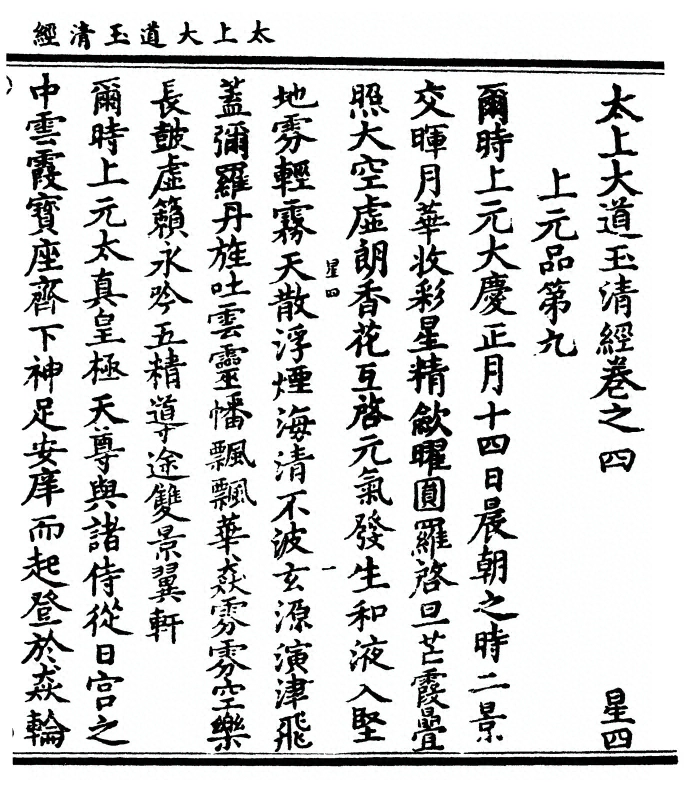 太上大道玉清經
太上大道玉清經卷之四 星四
上元品第九
爾時上元大慶正月十四日晨朝之時二景
交暉月華收彩星精斂曜圓羅啓旦芒霞疊
照大空虛朗香花互啓元氣發生和液入堅
星四 一
地雰輕霧天散浮煙海清不波玄源演津飛
蓋彌羅丹旌吐雲靈幡飄飄華猋雰雰空樂
長鼓虛籟永吟五精導途雙景翼軒
爾時上元太真皇極天尊與諸侍從日宮之
中雲霞寶座齊下神足安庠而起登於猋輪